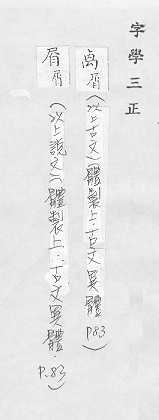 字學三正
禼屑（以上古文）（體製上：古文異體 P.83）
屑屑（以上說文）（體製上：古文異體．P.83）